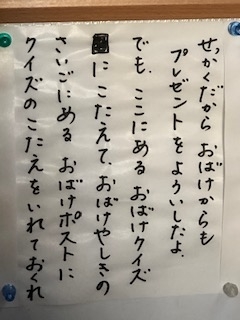 せっかくだから おばけからも
プレゼントをよういしたよ.
でも、ここにある おばけクイズ
に こたえて、おばけやしきの
さいごにある おばけポストに
クイズのこたえをいれておくれ